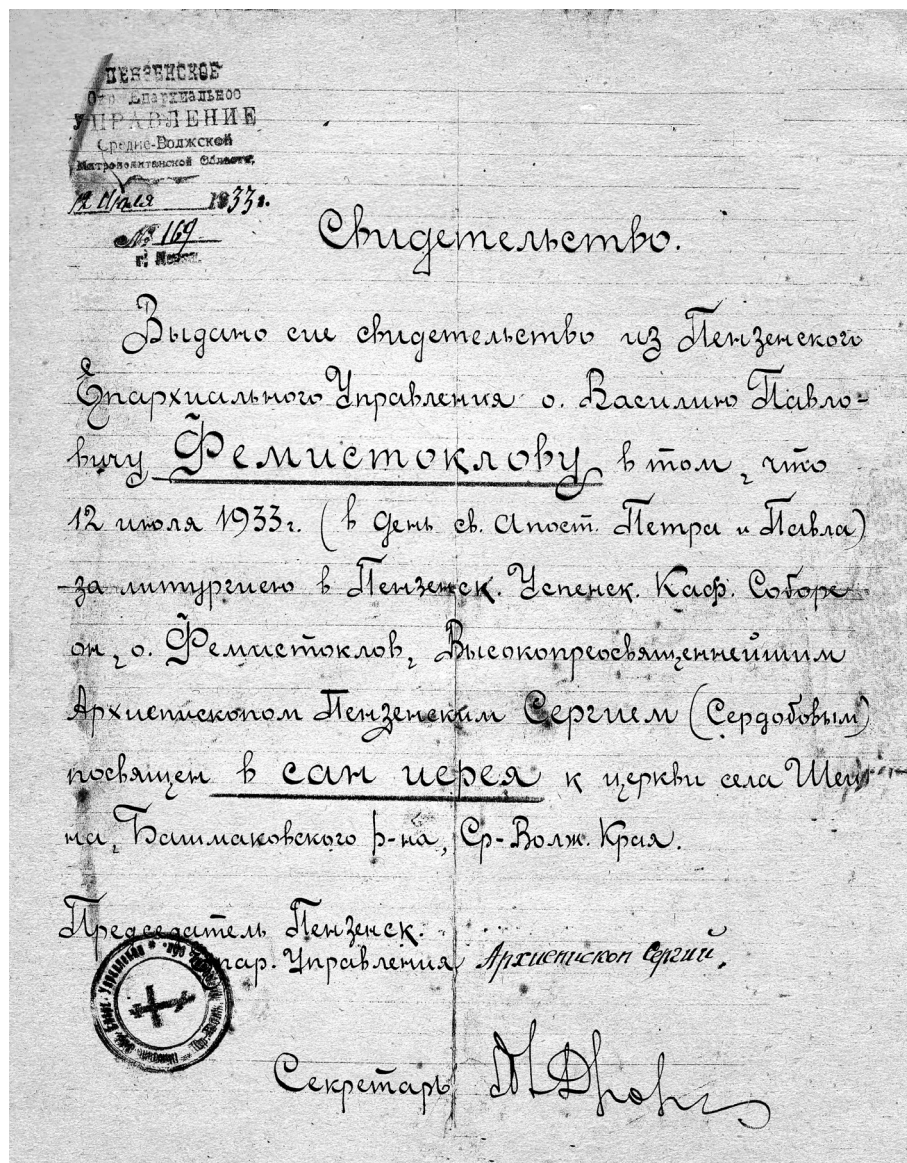 ПЕНЗЕНСКОЕ
Епархиальное
УПРАВЛЕНИЕ
Средне-Волжской
Митрополитанской Области,
12 Июля 1933 г.
№ 169
г. Пенза.
Свидетельство.
Выдано сие свидетельство из Пензенского
Епархиального Управления о. Василию Павло-
вичу Фемистоклову в том, что
12 июля 1933 г. (в день св. Апост. Петра и Павла)
за литургиею в Пензенск. Успенск. Каф. Соборе
он, о. Фемистоклов, Высокопреосвященнейшим
Архиепископом Пензенским Сергием (Сердобовым)
посвящен в сан иерея к церкви села Шей-
на, Башмаковского р-на, Ср-Волж. Края.
Председатель Пензенск.
Епар. Управления, Архиепископ Сергий.
Секретарь